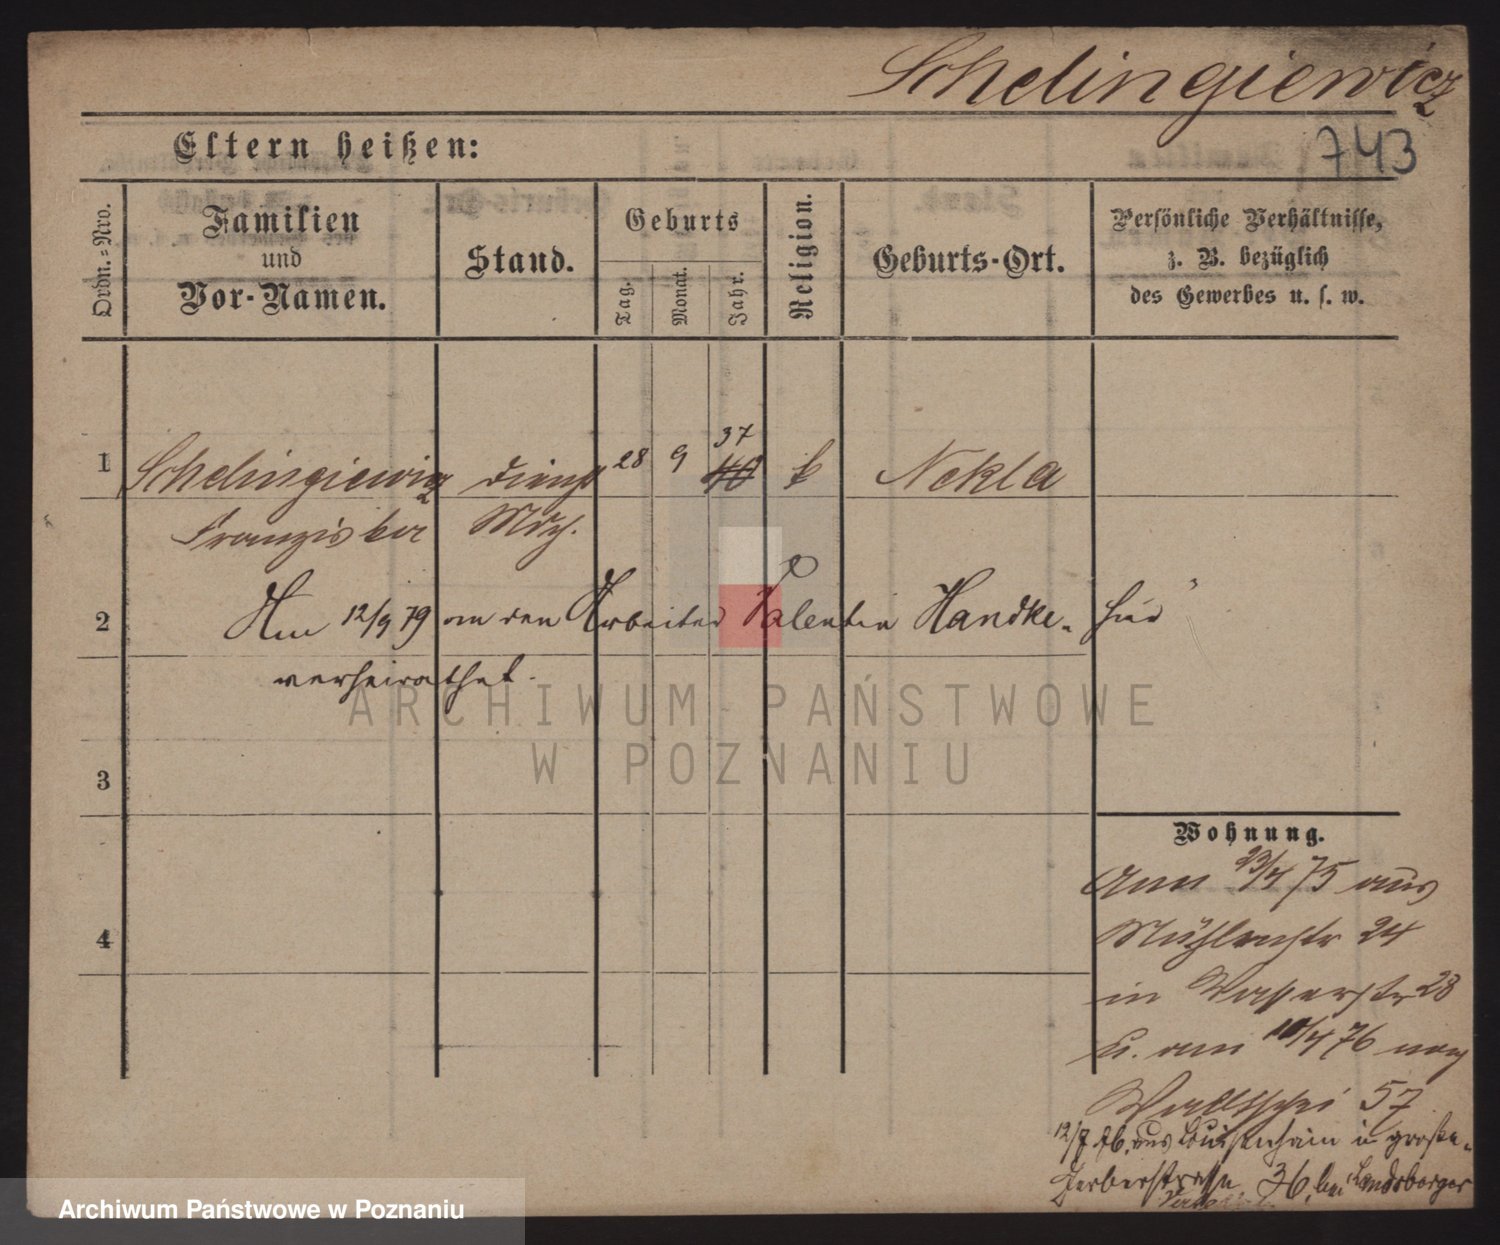 Schelingiewicz
743
Eltern heißen:
Ordn.-Nro.
Familien
und
Vor-Namen.
Stand.
Geburts
Tag.
Monat.
Jahr.
Religion.
Geburts-Ort.
Persönliche Verhältnisse,
z. B. bezüglich
des Gewerbes u. s. w.
37
1 Schelingiewicz Dienst 28 9 40 k Nekla
Franziska Mdch.
2 Am 12/9 79 an den Arbeiter Valentin Handke- hier
verheirathet.
ARCHIWUM PAŃSTWOWE
W POZNANIU
3
Wohnung.
Am 23/4 75 aus
4 Mühlenstr 24
in Wasserstr 28
u. am 10/4 76 nach
Wallischei 57
12/7 76. aus Louisenhain in große-
Gerberstrasse 36, bei Landsberger
Archiwum Państwowe w Poznaniu